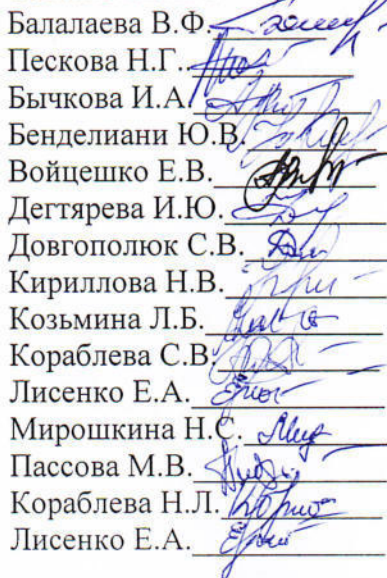 Балалаева В.Ф.
Пескова Н.Г.
Бычкова И.А.
Бенделиани Ю.В.
Войцешко Е.В.
Дегтярева И.Ю.
Довгополюк С.В.
Кириллова Н.В.
Козьмина Л.Б.
Кораблева С.В.
Лисенко Е.А.
Мирошкина Н.С.
Пассова М.В.
Кораблева Н.Л.
Лисенко Е.А.